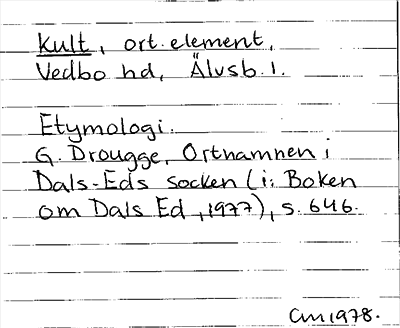 Kult, ort.element,
Vedbo hd, Älvsb. l.
Etymologi.
G. Drougge, Ortnamnen i
Dals-Eds socken (i: Boken
om Dals Ed, 1977), s. 646.
CM 1978.